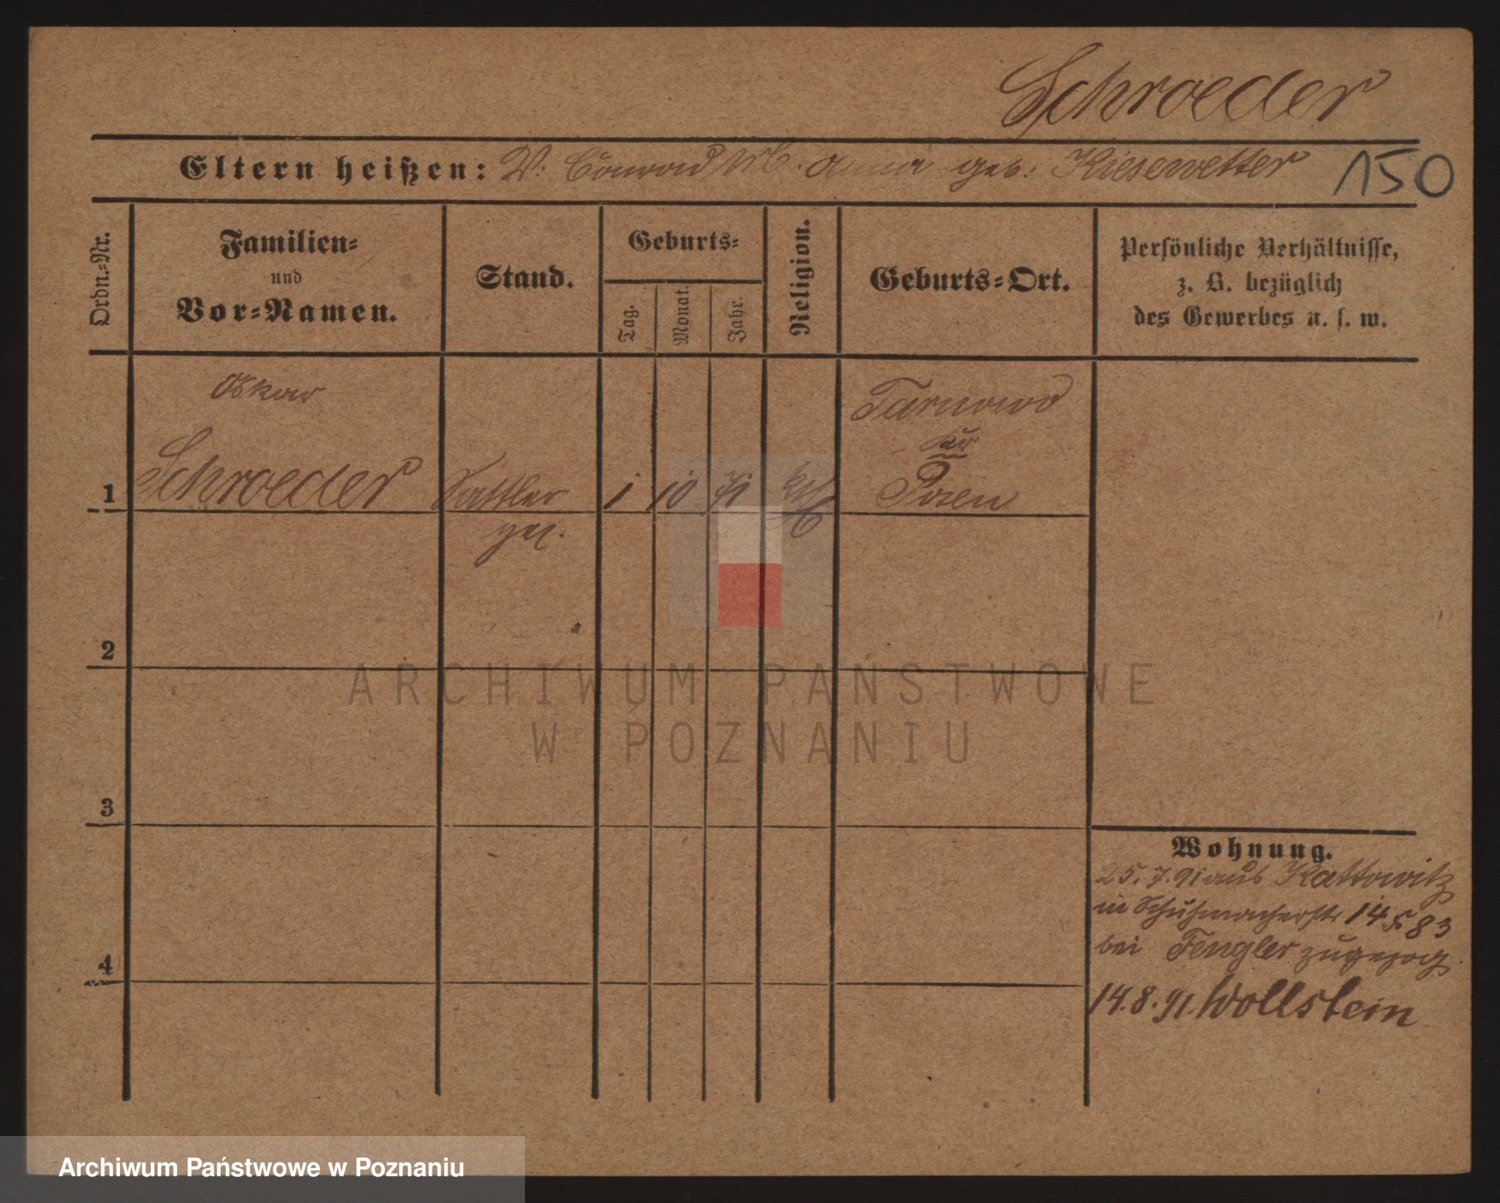 Schroeder
Eltern heißen: V. Conrad M. Anna geb: Kiesewetter
150
Ordn.-Nr.
Familien-
und
Vor-Namen.
Stand.
Geburts-
Tag.
Monat.
Jahr.
Religion.
Geburts-Ort.
Persönliche Verhältnisse,
z. B. bezüglich
des Gewerbes u. s. w.
Oskar
Tarnowo
Kr
1 Schroeder Sattler 1 10 71 Posen
ges.
2
3
4
ARCHIWUM PAŃSTWOWE
W POZNANIU
Wohnung.
25.7.91 aus Kattowitz
in Schuhmacherstr 14 83
bei Fengler zugezog.
14.8.91. Wollstein
Archiwum Państwowe w Poznaniu